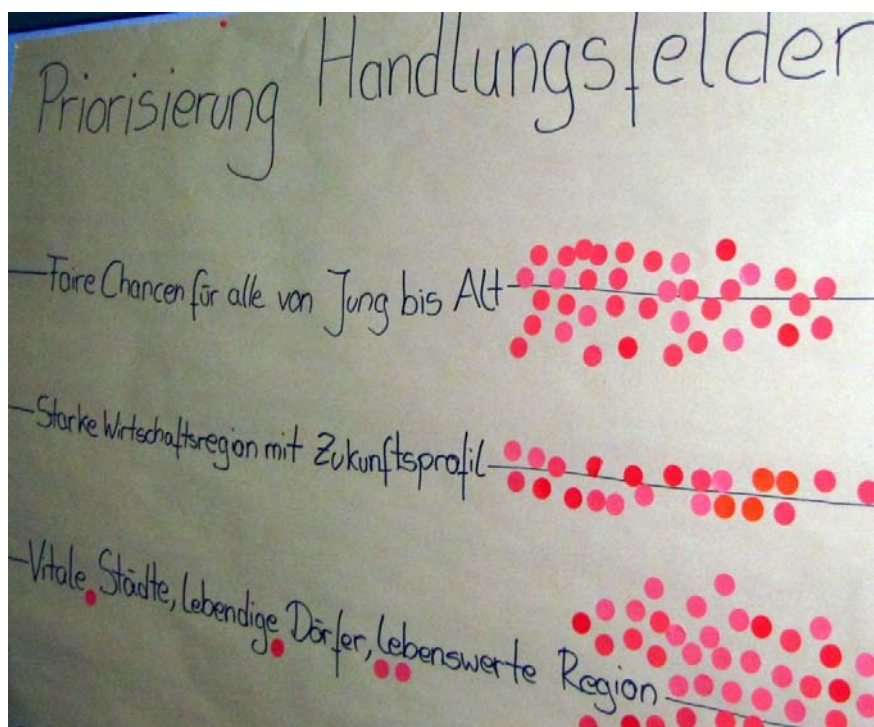 Priorisierung Handlungsfelder
Faire Chancen für alle von Jung bis Alt
Starke Wirtschaftsregion mit Zukunftsprofil
Vitale Städte, lebendige Dörfer, lebenswerte Region